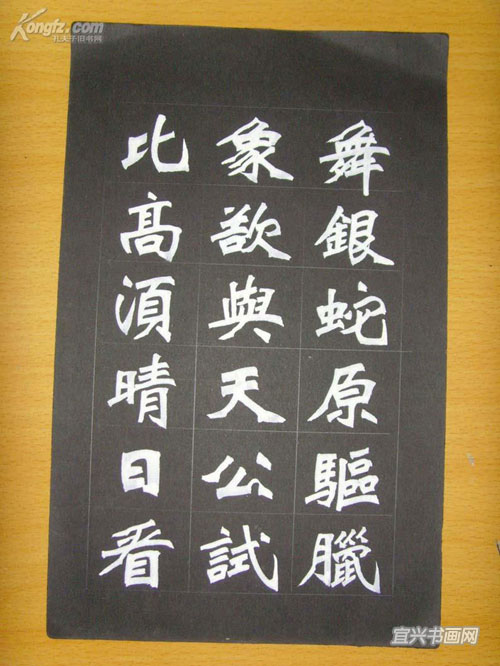 Kongfz.com
孔夫子旧书网
舞銀蛇原驅臘
象欲與天公試
比髙湏晴日看
宜兴书画网